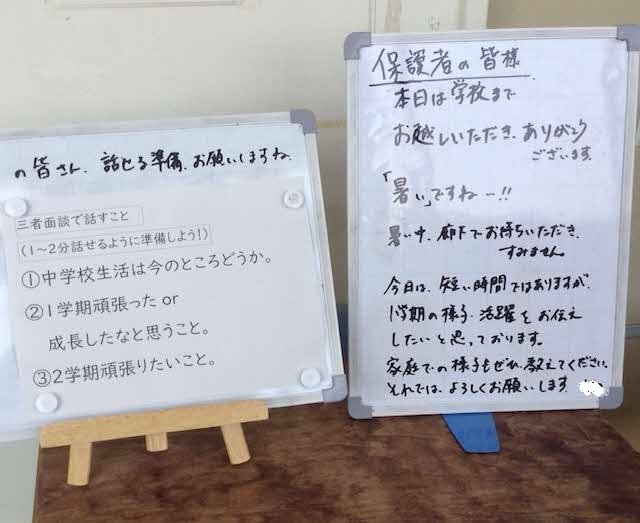 の皆さん、話せる準備、お願いしますね
三者面談で話すこと
(1～2分話せるように準備しよう!)
①中学校生活は今のところどうか。
②1学期頑張った or
成長したなと思うこと。
③2学期頑張りたいこと。
保護者の皆様
本日は学校まで
お越しいただき、ありがとう
ございます。
「暑い」ですねー!!
暑い中、廊下でお待ちいただき、
すみません。
今日は、短い時間ではありますが、
1学期の様子・活躍をお伝え
したいと思っております。
家庭での様子もぜひ、教えてください。
それでは、よろしくお願いします